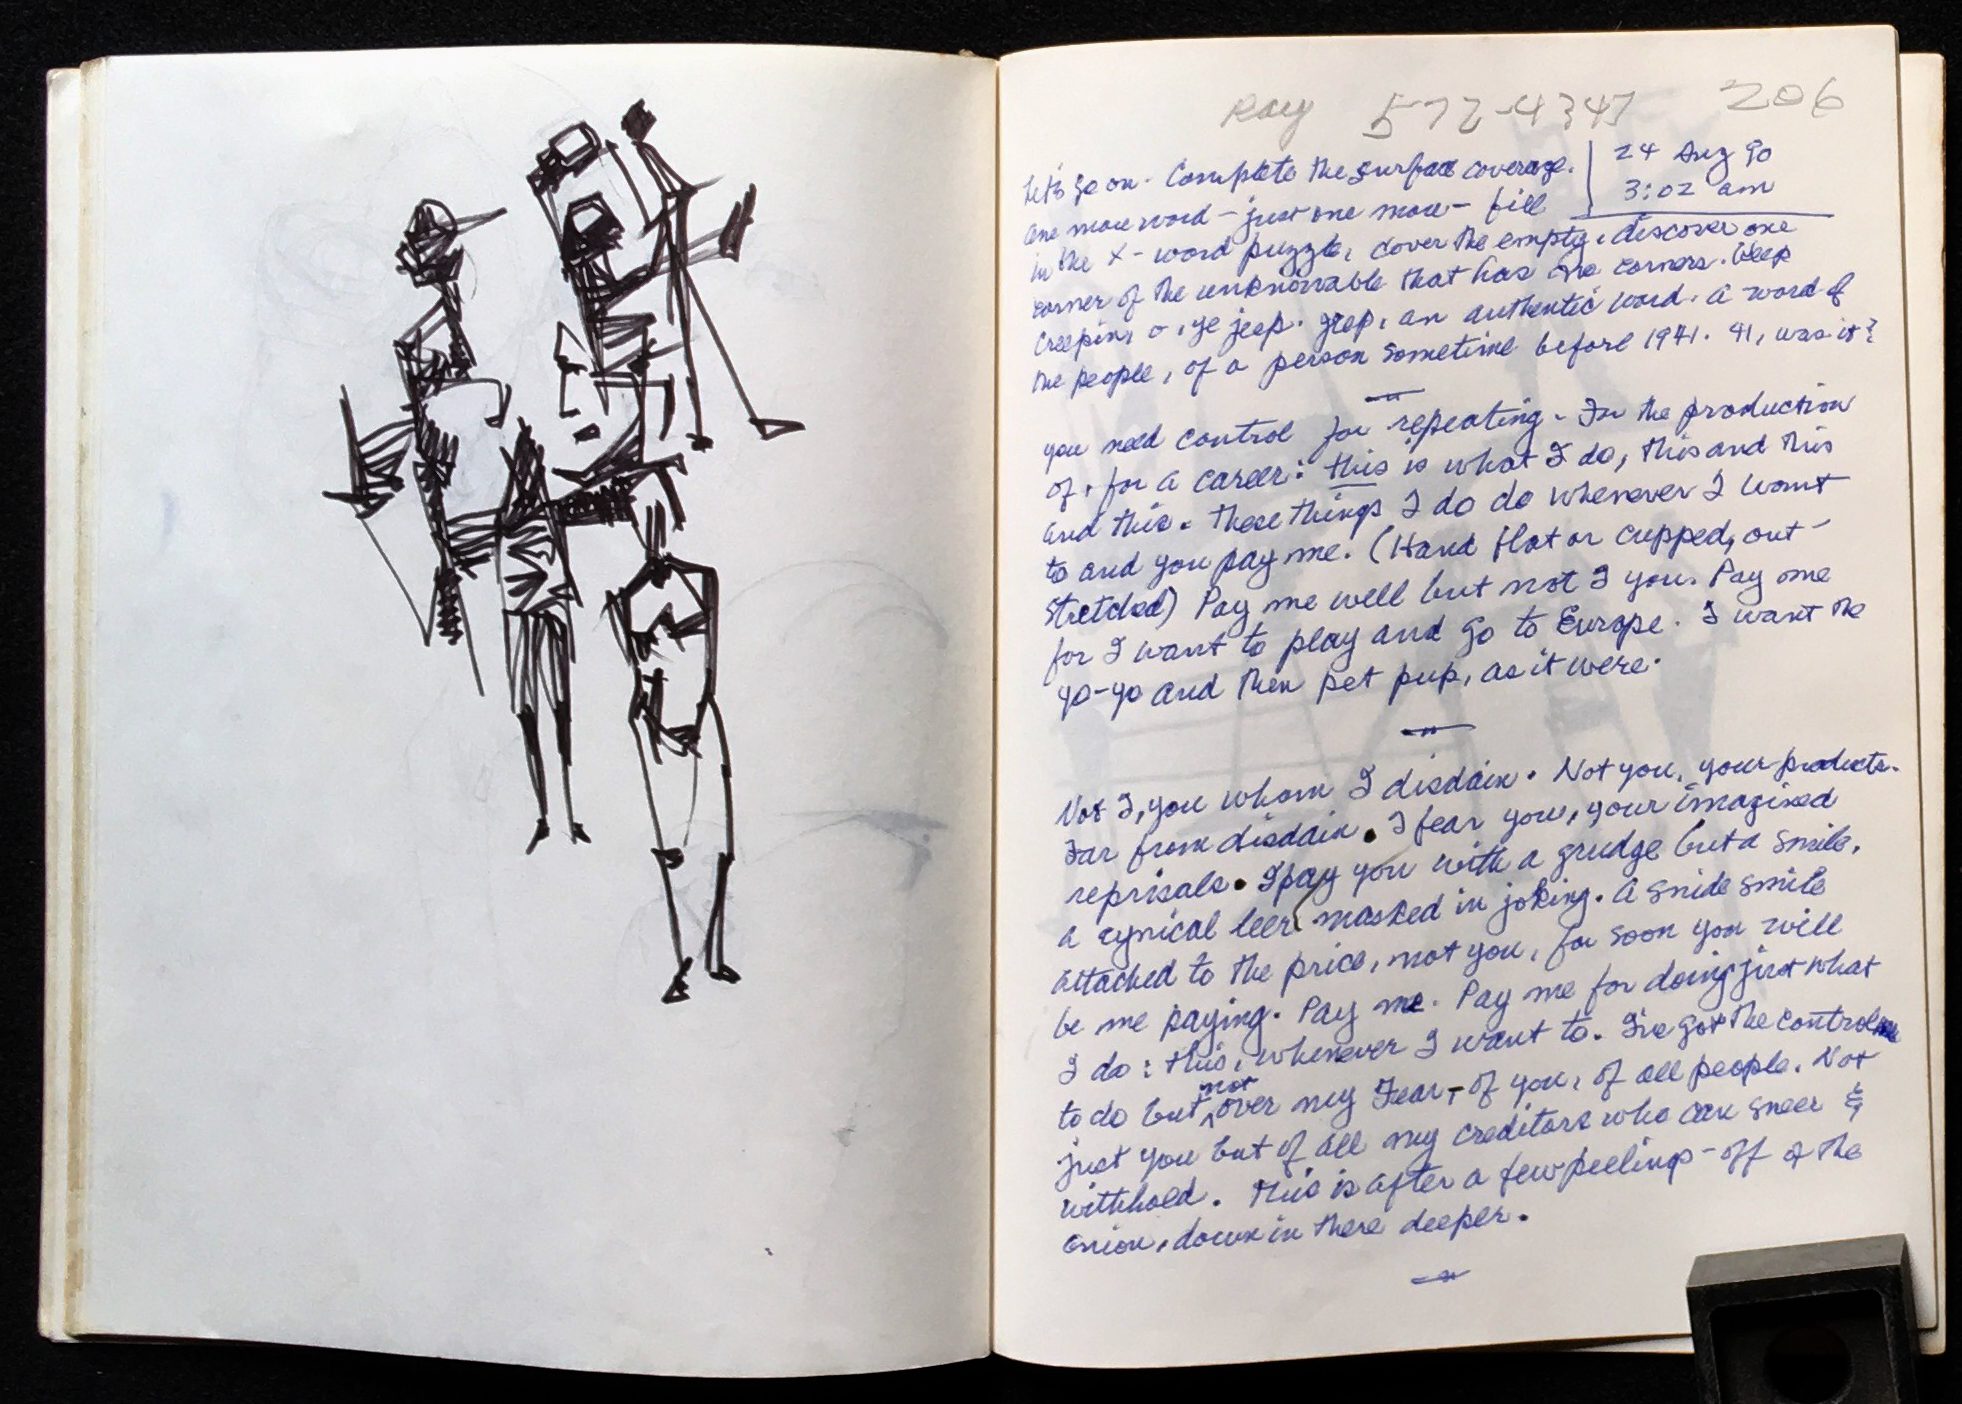 Ray 572-4347 206
24 Aug 90
3:02 am
Let's go on. Complete the surface coverage.
One more word - just one more - fill
in the X-word puzzle, cover the empty, discover one
corner of the unknowable that has no corners. Weep
creeping o, ye jeep. grep, an authentic word. A word of
the people, of a person sometime before 1941. 41, was it?
you need control for repeating. In the production
of, for a career: this is what I do, this and this
and this. These things I do do whenever I want
to and you pay me. (Hand flat or cupped, out-
stretched) Pay me well but not I you. Pay me
for I want to play and go to Europe. I want the
yo-yo and then pet pup, as it were.
Not I, you whom I disdain. Not you, your products.
Far from disdain. I fear you, your imagined
reprisals. I pay you with a grudge but a smile,
a cynical leer masked in joking. A snide smile
attached to the price, not you, for soon you will
be me paying. Pay me. Pay me for doing just what
I do: this, whenever I want to. I've got the control
to do but not over my Fear - of you, of all people. Not
just you but of all my creditors who can sneer &
withhold. This is after a few peelings-off of the
onion, down in there deeper.